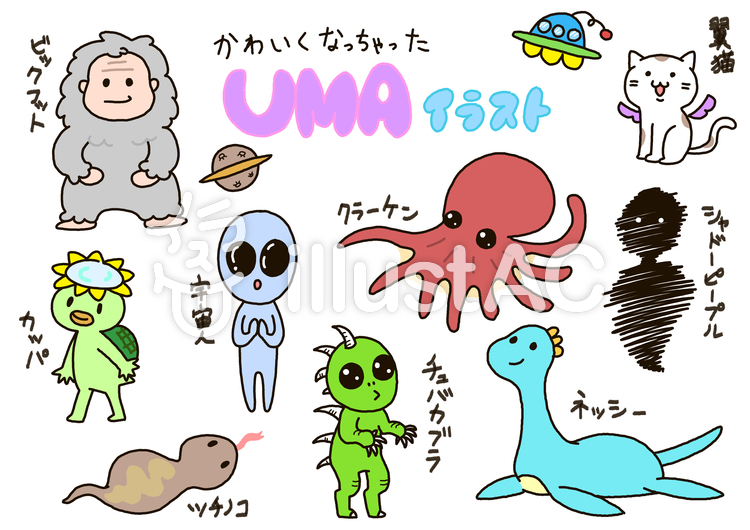 かわいくなっちゃった
UMA イラスト
ビックフット
翼猫
クラーケン
シャドーピープル
宇宙人
カッパ
チュパカブラ
ネッシー
ツチノコ
illustAC